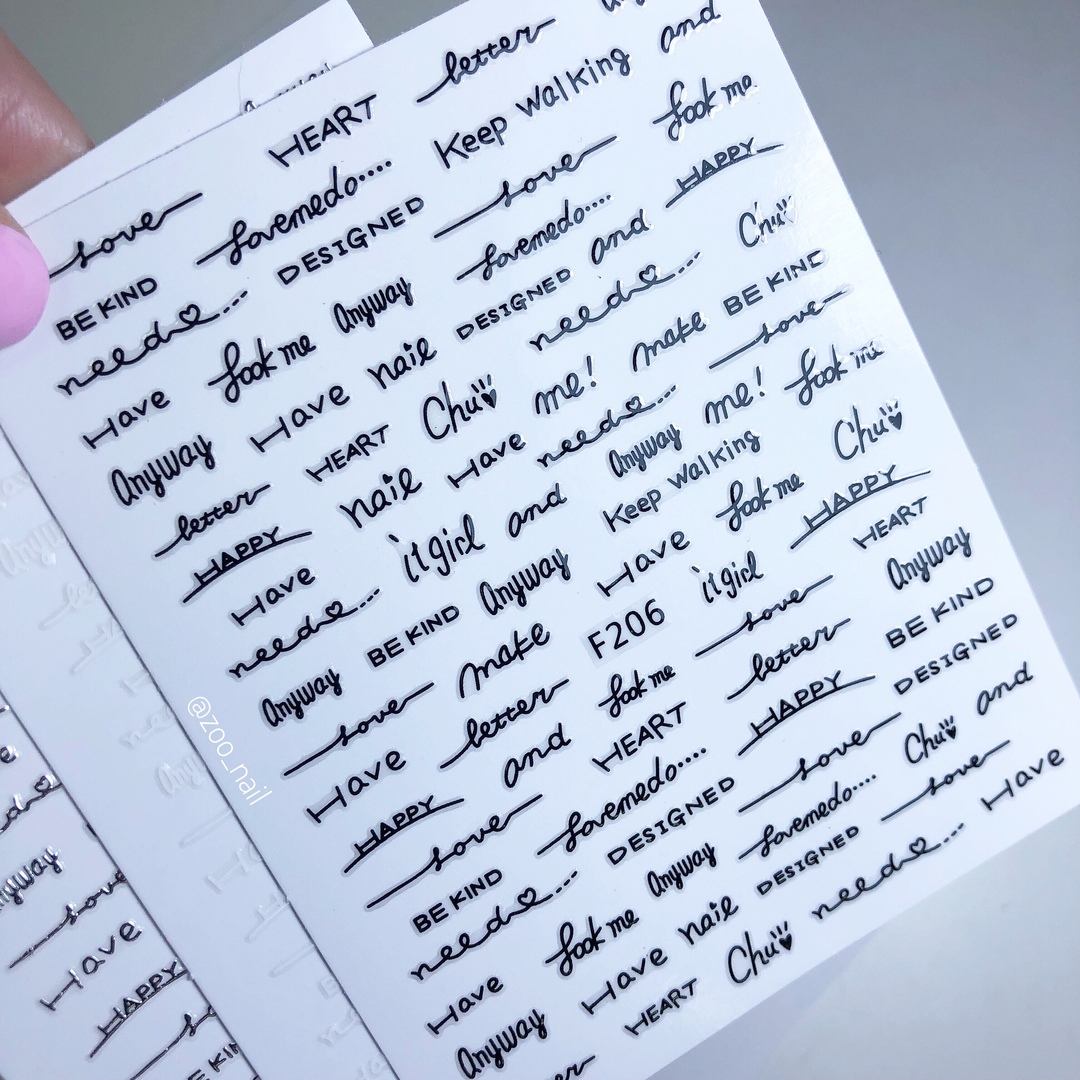 HEART letter
love lovemedo.... Keep walking and
BE KIND DESIGNED love look me
need... Anyway lovemedo.... HAPPY
Have look me DESIGNED and Chu
Anyway Have nail need... BE KIND
letter HEART Chu me! make love
HAPPY nail Have need... me! look me
Have itgirl and Anyway Keep walking Chu
need... BE KIND Anyway Have look me HAPPY
Anyway make F206 itgirl HEART
love letter look me love Anyway
Have and HEART letter BE KIND
HAPPY love lovemedo.... HAPPY DESIGNED
BE KIND DESIGNED love Chu and
need... Anyway lovemedo.... love Have
Have look me nail DESIGNED need...
Anyway Have HEART Chu
@zoo_nail
Anyway
love
Have
HAPPY